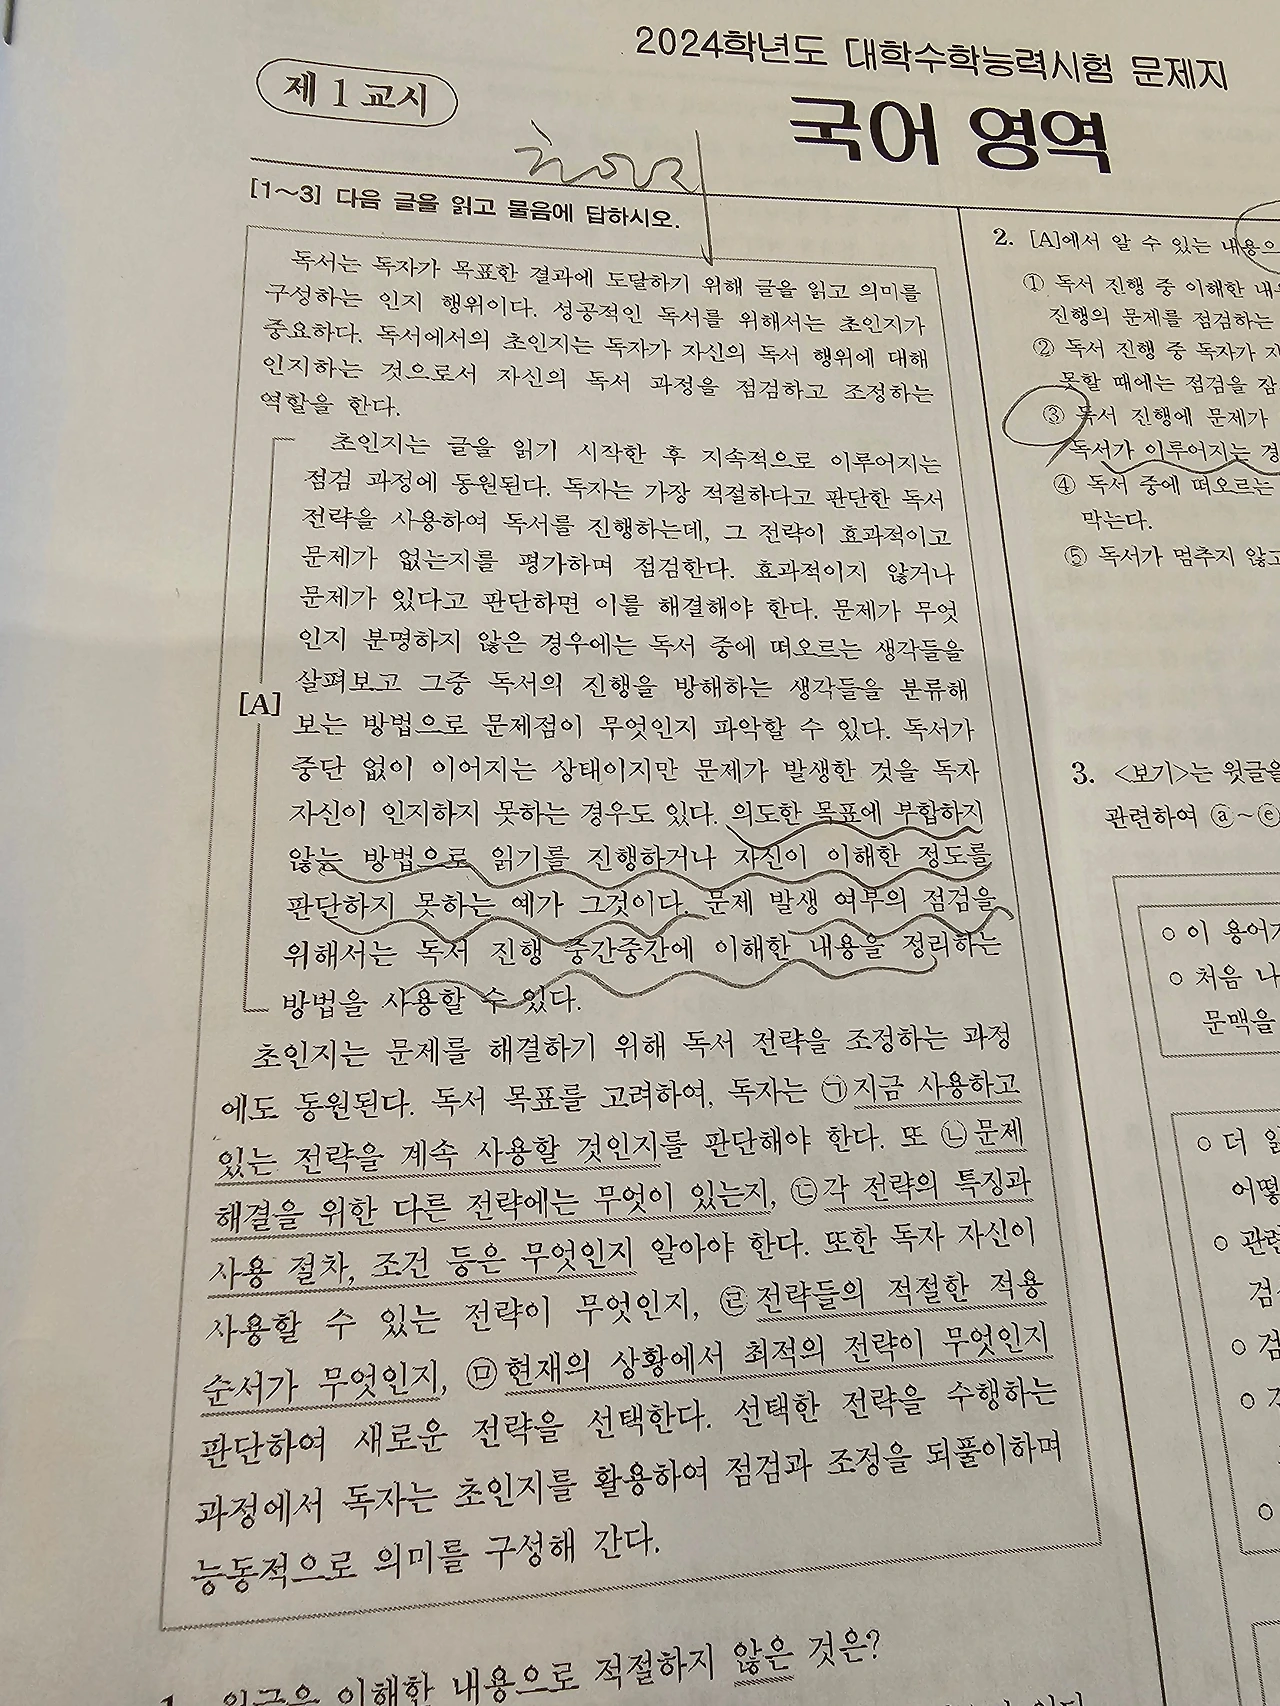 2024학년도 대학수학능력시험 문제지
제 1 교시
국어 영역
[1~3] 다음 글을 읽고 물음에 답하시오.
독서는 독자가 목표한 결과에 도달하기 위해 글을 읽고 의미를
구성하는 인지 행위이다. 성공적인 독서를 위해서는 초인지가
중요하다. 독서에서의 초인지는 독자가 자신의 독서 행위에 대해
인지하는 것으로서 자신의 독서 과정을 점검하고 조정하는
역할을 한다.
초인지는 글을 읽기 시작한 후 지속적으로 이루어지는
점검 과정에 동원된다. 독자는 가장 적절하다고 판단한 독서
전략을 사용하여 독서를 진행하는데, 그 전략이 효과적이고
문제가 없는지를 평가하며 점검한다. 효과적이지 않거나
문제가 있다고 판단하면 이를 해결해야 한다. 문제가 무엇
인지 분명하지 않은 경우에는 독서 중에 떠오르는 생각들을
살펴보고 그중 독서의 진행을 방해하는 생각들을 분류해
[A]
보는 방법으로 문제점이 무엇인지 파악할 수 있다. 독서가
중단 없이 이어지는 상태이지만 문제가 발생한 것을 독자
자신이 인지하지 못하는 경우도 있다. 의도한 목표에 부합하지
않는 방법으로 읽기를 진행하거나 자신이 이해한 정도를
판단하지 못하는 예가 그것이다. 문제 발생 여부의 점검을
위해서는 독서 진행 중간중간에 이해한 내용을 정리하는
방법을 사용할 수 있다.
초인지는 문제를 해결하기 위해 독서 전략을 조정하는 과정
에도 동원된다. 독서 목표를 고려하여, 독자는 ㉠지금 사용하고
있는 전략을 계속 사용할 것인지를 판단해야 한다. 또 ㉡문제
해결을 위한 다른 전략에는 무엇이 있는지, ㉢각 전략의 특징과
사용 절차, 조건 등은 무엇인지 알아야 한다. 또한 독자 자신이
사용할 수 있는 전략이 무엇인지, ㉣전략들의 적절한 적용
순서가 무엇인지, ㉤현재의 상황에서 최적의 전략이 무엇인지
판단하여 새로운 전략을 선택한다. 선택한 전략을 수행하는
과정에서 독자는 초인지를 활용하여 점검과 조정을 되풀이하며
능동적으로 의미를 구성해 간다.
1. 윗글을 이해한 내용으로 적절하지 않은 것은?
2. [A]에서 알 수 있는 내용으
① 독서 진행 중 이해한 내
진행의 문제를 점검하는
② 독서 진행 중 독자가
못할 때에는 점검을 잠
③ 독서 진행에 문제가
독서가 이루어지는 경
④ 독서 중에 떠오르는
막는다.
⑤ 독서가 멈추지 않고
3. <보기>는 윗글을
관련하여 ⓐ~ⓔ
○ 이 용어가
○ 처음 나
문맥을
○ 더 읽
어떻
○ 관련
검
○ 검
○
○